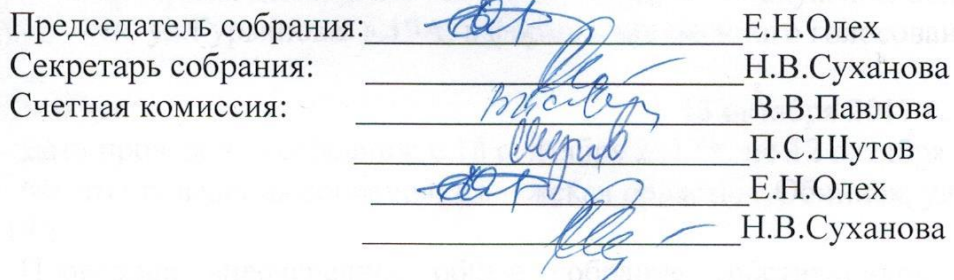 Председатель собрания: Е.Н.Олех
Секретарь собрания: Н.В.Суханова
Счетная комиссия: В.В.Павлова
П.С.Шутов
Е.Н.Олех
Н.В.Суханова